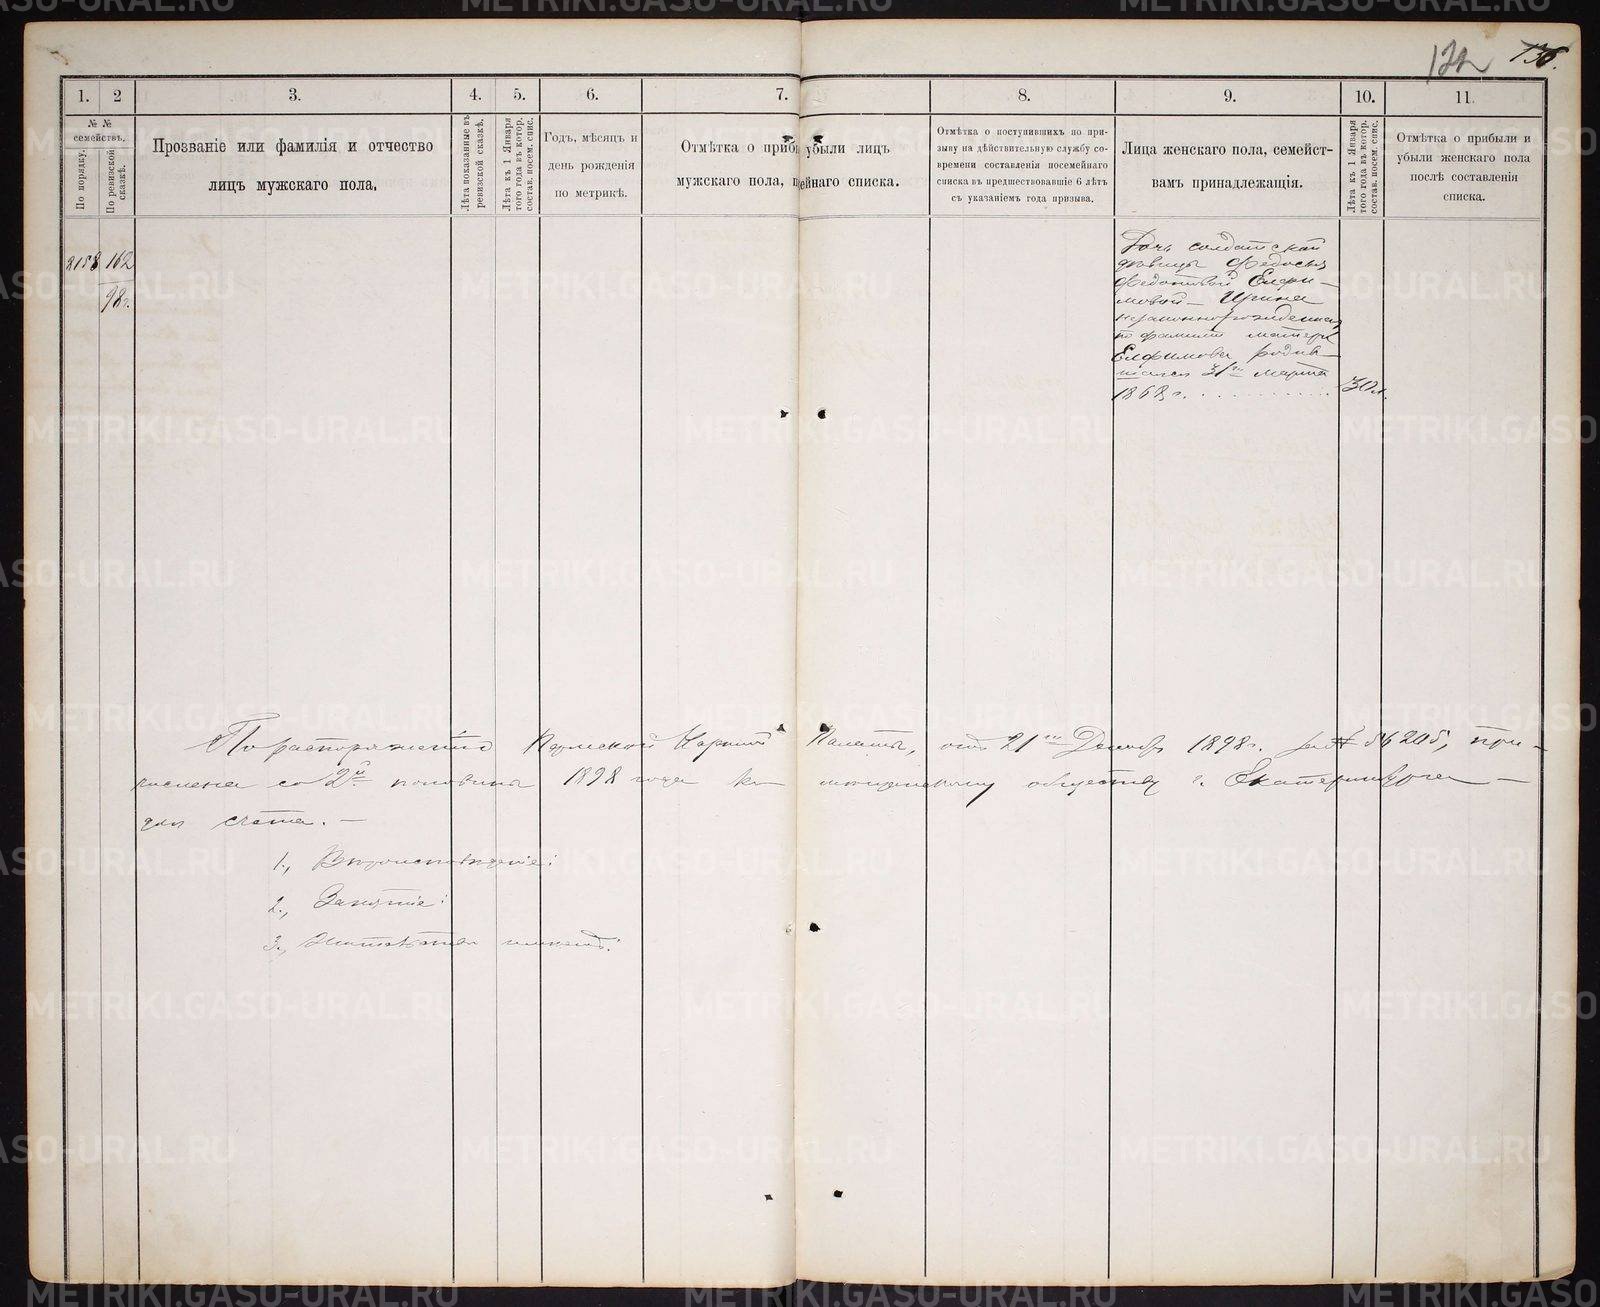 132 136.
1. 2 3. 4. 5. 6. 7. 8. 9. 10. 11.
№ № семействъ.
По порядку.
По ревизской сказкѣ.
Прозваніе или фамилія и отчество
лицъ мужскаго пола.
Лѣта показанные въ
ревизской сказкѣ.
Лѣта къ 1 Января
того года въ котор.
состав. посем. спис.
Годъ, мѣсяцъ и
день рожденія
по метрикѣ.
Отмѣтка о приб убыли лицъ
мужскаго пола, п ейнаго списка.
Отмѣтка о поступившихъ по при-
зыву на дѣйствительную службу со-
времени составленія посемейнаго
списка въ предшествовавшіе 6 лѣтъ
съ указаніемъ года призыва.
Лица женскаго пола, семейст-
вамъ принадлежащія.
Лѣта къ 1 Января
того года въ котор.
состав. посем. спис.
Отмѣтка о прибыли и
убыли женскаго пола
послѣ составленія
списка.
2158 162
98г.
Дочь солдатской
дѣвицы Федосьи
Федотовой Елфи-
мовой - Ирина
незаконнорожденная
по фамиліи матери
Елфимова родив-
шаяся 31го марта
1868 г. 30 л.
По распоряженію Пермской Казенной Палаты, отъ 21го Декабря 1898 г. за № 56205, при-
числена со 2й половины 1898 года къ мѣщанскому обществу г. Екатеринбурга -
для счета. -
1., Вѣроисповѣданіе:
2., Занятіе:
3.,